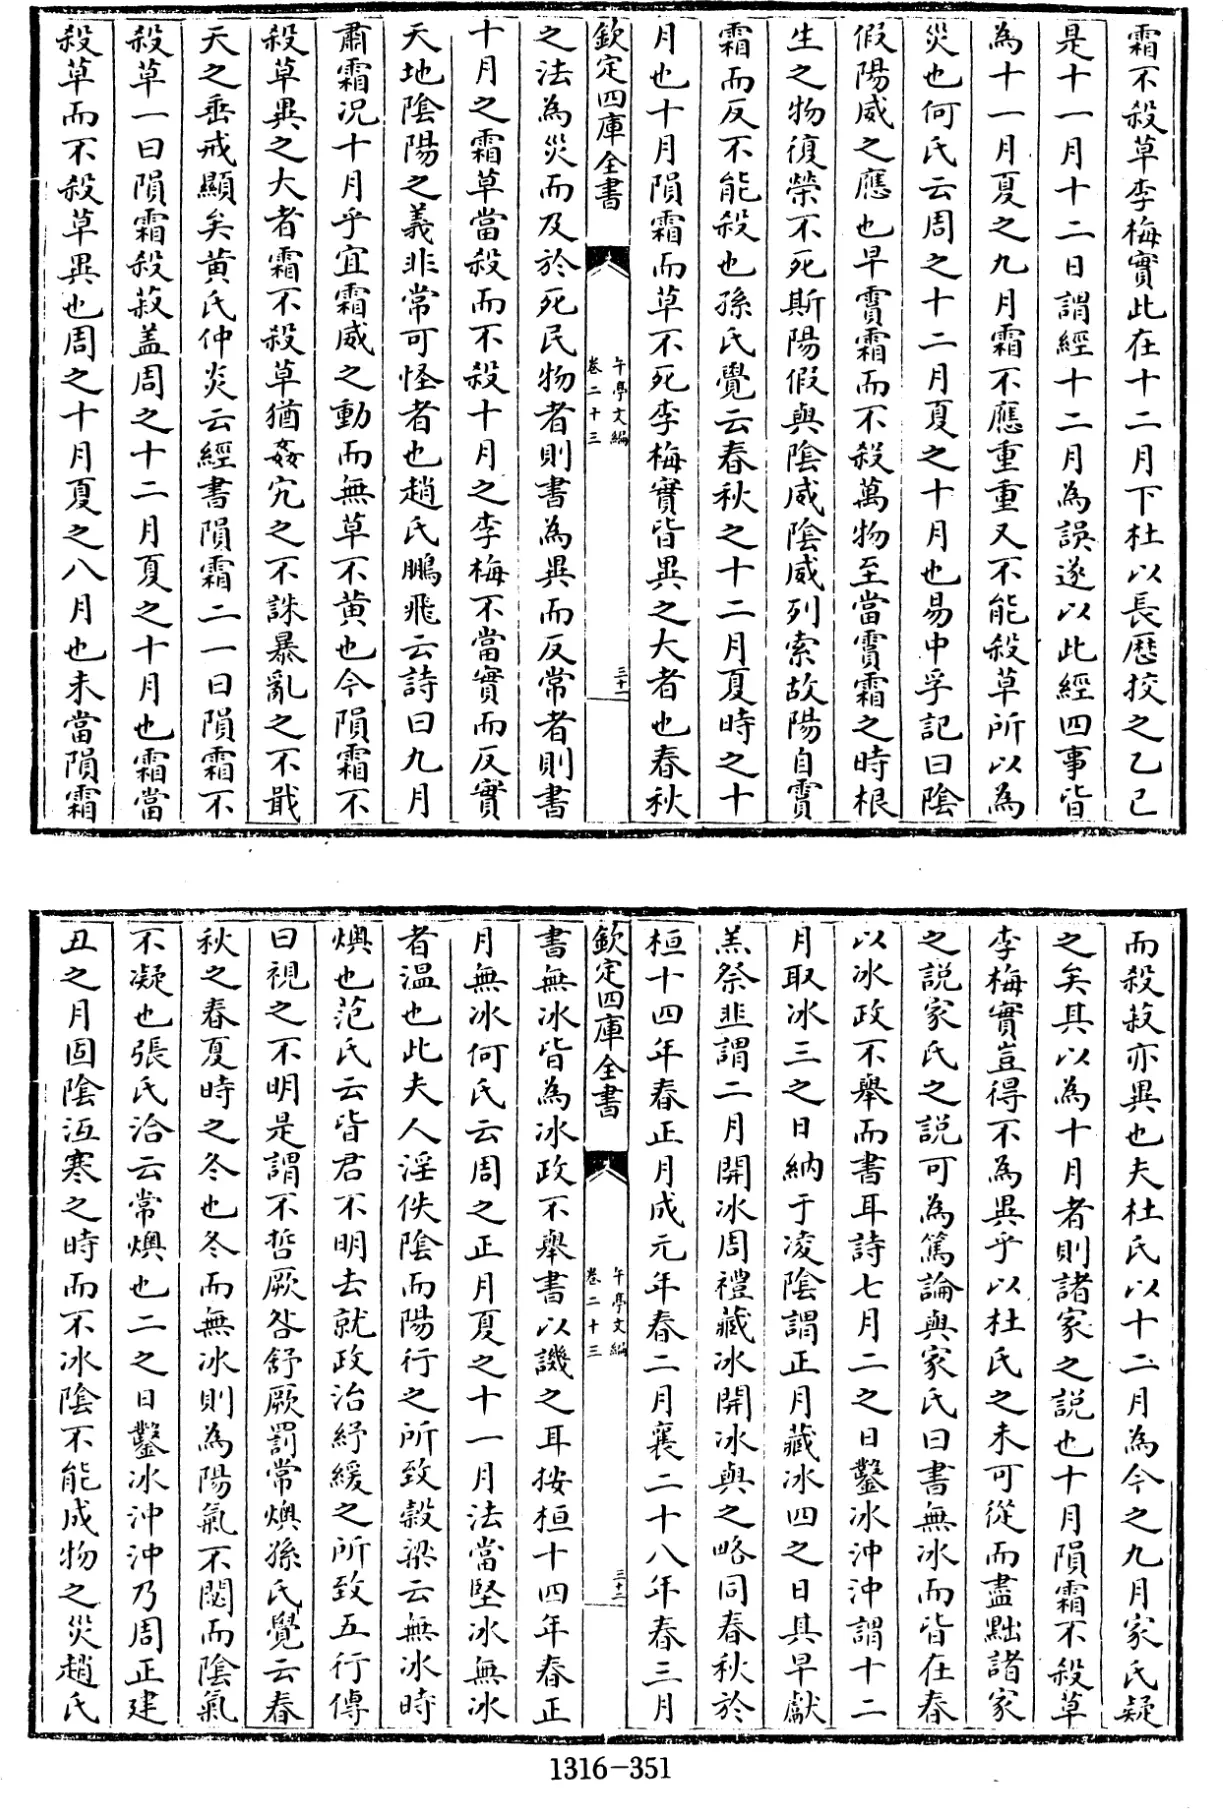 霜不殺草李梅實此在十二月下杜以長歴挍之乙已
是十一月十二日謂經十二月為誤遂以此經四事皆
為十一月夏之九月霜不應重重又不能殺草所以為
災也何氏云周之十二月夏之十月也易中孚記曰陰
假陽威之應也早霣霜而不殺萬物至當霣霜之時根
生之物復榮不死斯陽假與陰威陰威列索故陽自霣
霜而反不能殺也孫氏覺云春秋之十二月夏時之十
月也十月隕霜而草不死李梅實皆異之大者也春秋
欽定四庫全書 午亭文編 卷二十三 三十一
之法為災而及於死民物者則書為異而反常者則書
十月之霜草當殺而不殺十月之李梅不當實而反實
天地陰陽之義非常可怪者也趙氏鵬飛云詩曰九月
肅霜况十月乎宜霜威之動而無草不黄也今隕霜不
殺草異之大者霜不殺草猶姦宄之不誅暴亂之不戢
天之垂戒顯矣黄氏仲炎云經書隕霜二一曰隕霜不
殺草一曰隕霜殺菽盖周之十二月夏之十月也霜當
殺草而不殺草異也周之十月夏之八月也未當隕霜
而殺菽亦異也夫杜氏以十二月為今之九月家氏疑
之矣其以為十月者則諸家之説也十月隕霜不殺草
李梅實豈得不為異乎以杜氏之未可從而盡黜諸家
之説家氏之説可為篤論與家氏曰書無冰而皆在春
以冰政不舉而書耳詩七月二之日鑿冰沖沖謂十二
月取冰三之日納于凌陰謂正月藏冰四之日其早獻
羔祭韭謂二月開冰周禮藏冰開冰與之略同春秋於
桓十四年春正月成元年春二月襄二十八年春三月
欽定四庫全書 午亭文編 卷二十三 三十二
書無冰皆為冰政不舉書以譏之耳按桓十四年春正
月無冰何氏云周之正月夏之十一月法當堅冰無冰
者溫也此夫人淫佚陰而陽行之所致榖梁云無冰時
燠也范氏云皆君不明去就政治紓緩之所致五行傳
曰視之不明是謂不哲厥咎舒厥罰常燠孫氏覺云春
秋之春夏時之冬也冬而無冰則為陽氣不閟而陰氣
不凝也張氏洽云常燠也二之日鑿冰沖沖乃周正建
丑之月固陰沍寒之時而不冰陰不能成物之災趙氏
1316-351